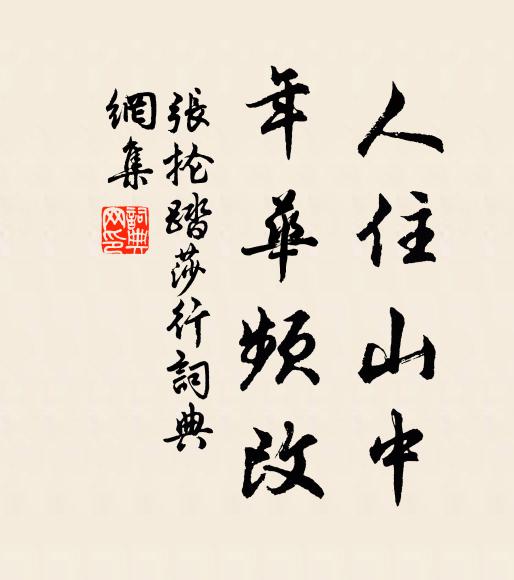 人住山中
年華頻改
張掄踏莎行詞典
網集
詞典網印